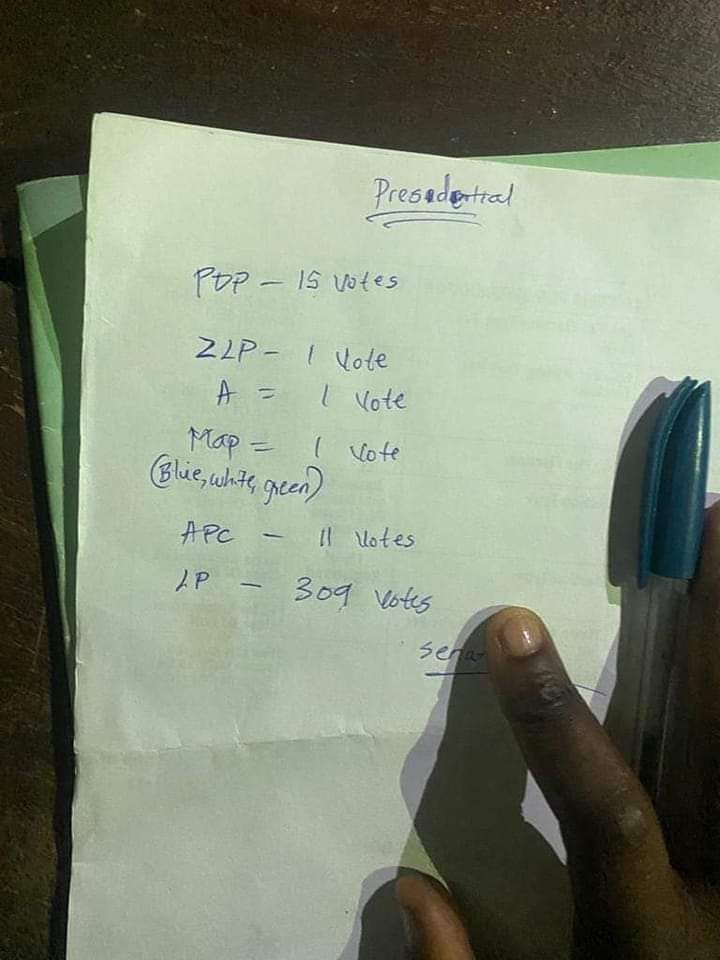 Presidential
PDP - 15 Votes
ZLP - 1 Vote
A = 1 Vote
Map = 1 Vote
(Blue, white, green)
APC - 11 Votes
LP - 309 Votes